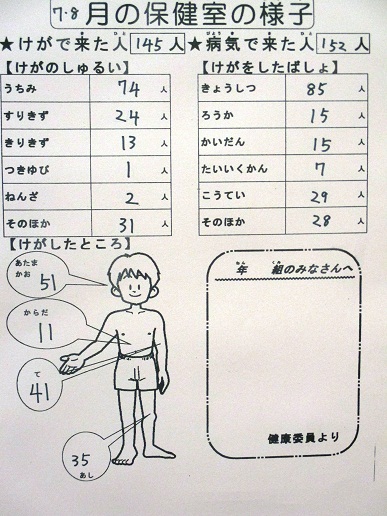 7・8月の保健室の様子
★けがで来た人 145人 ★病気で来た人 152人
【けがのしゅるい】
うちみ 74人
すりきず 24人
きりきず 13人
つきゆび 1人
ねんざ 2人
そのほか 31人
【けがをしたばしょ】
きょうしつ 85人
ろうか 15人
かいだん 15人
たいいくかん 7人
こうてい 29人
そのほか 28人
【けがしたところ】
あたま
かお 51
からだ
11
て
41
35
あし
年 組のみなさんへ
健康委員より